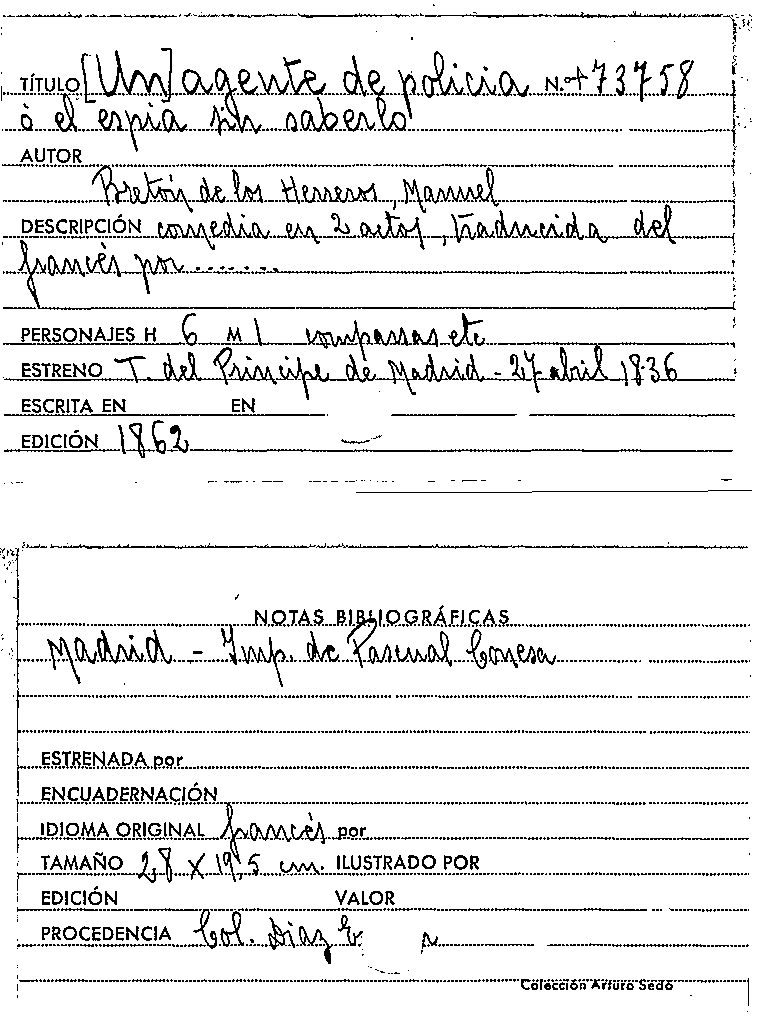 TÍTULO [Un] agente de policia N.º 73758
ò el espia sin saberlo
AUTOR
Bretón de los Herreros, Manuel
DESCRIPCIÓN comedia en 2 actos, traducida del
francés por .......
PERSONAJES H 6 M 1 comparsas etc
ESTRENO T. del Principe de Madrid - 27 abril 1836
ESCRITA EN EN
EDICIÓN 1862
NOTAS BIBLIOGRÁFICAS
Madrid - Imp. de Pascual Conesa
ESTRENADA por
ENCUADERNACIÓN
IDIOMA ORIGINAL francés por
TAMAÑO 28 X 19,5 cm. ILUSTRADO POR
EDICIÓN VALOR
PROCEDENCIA Col. Díaz
Colección Arturo Sedó